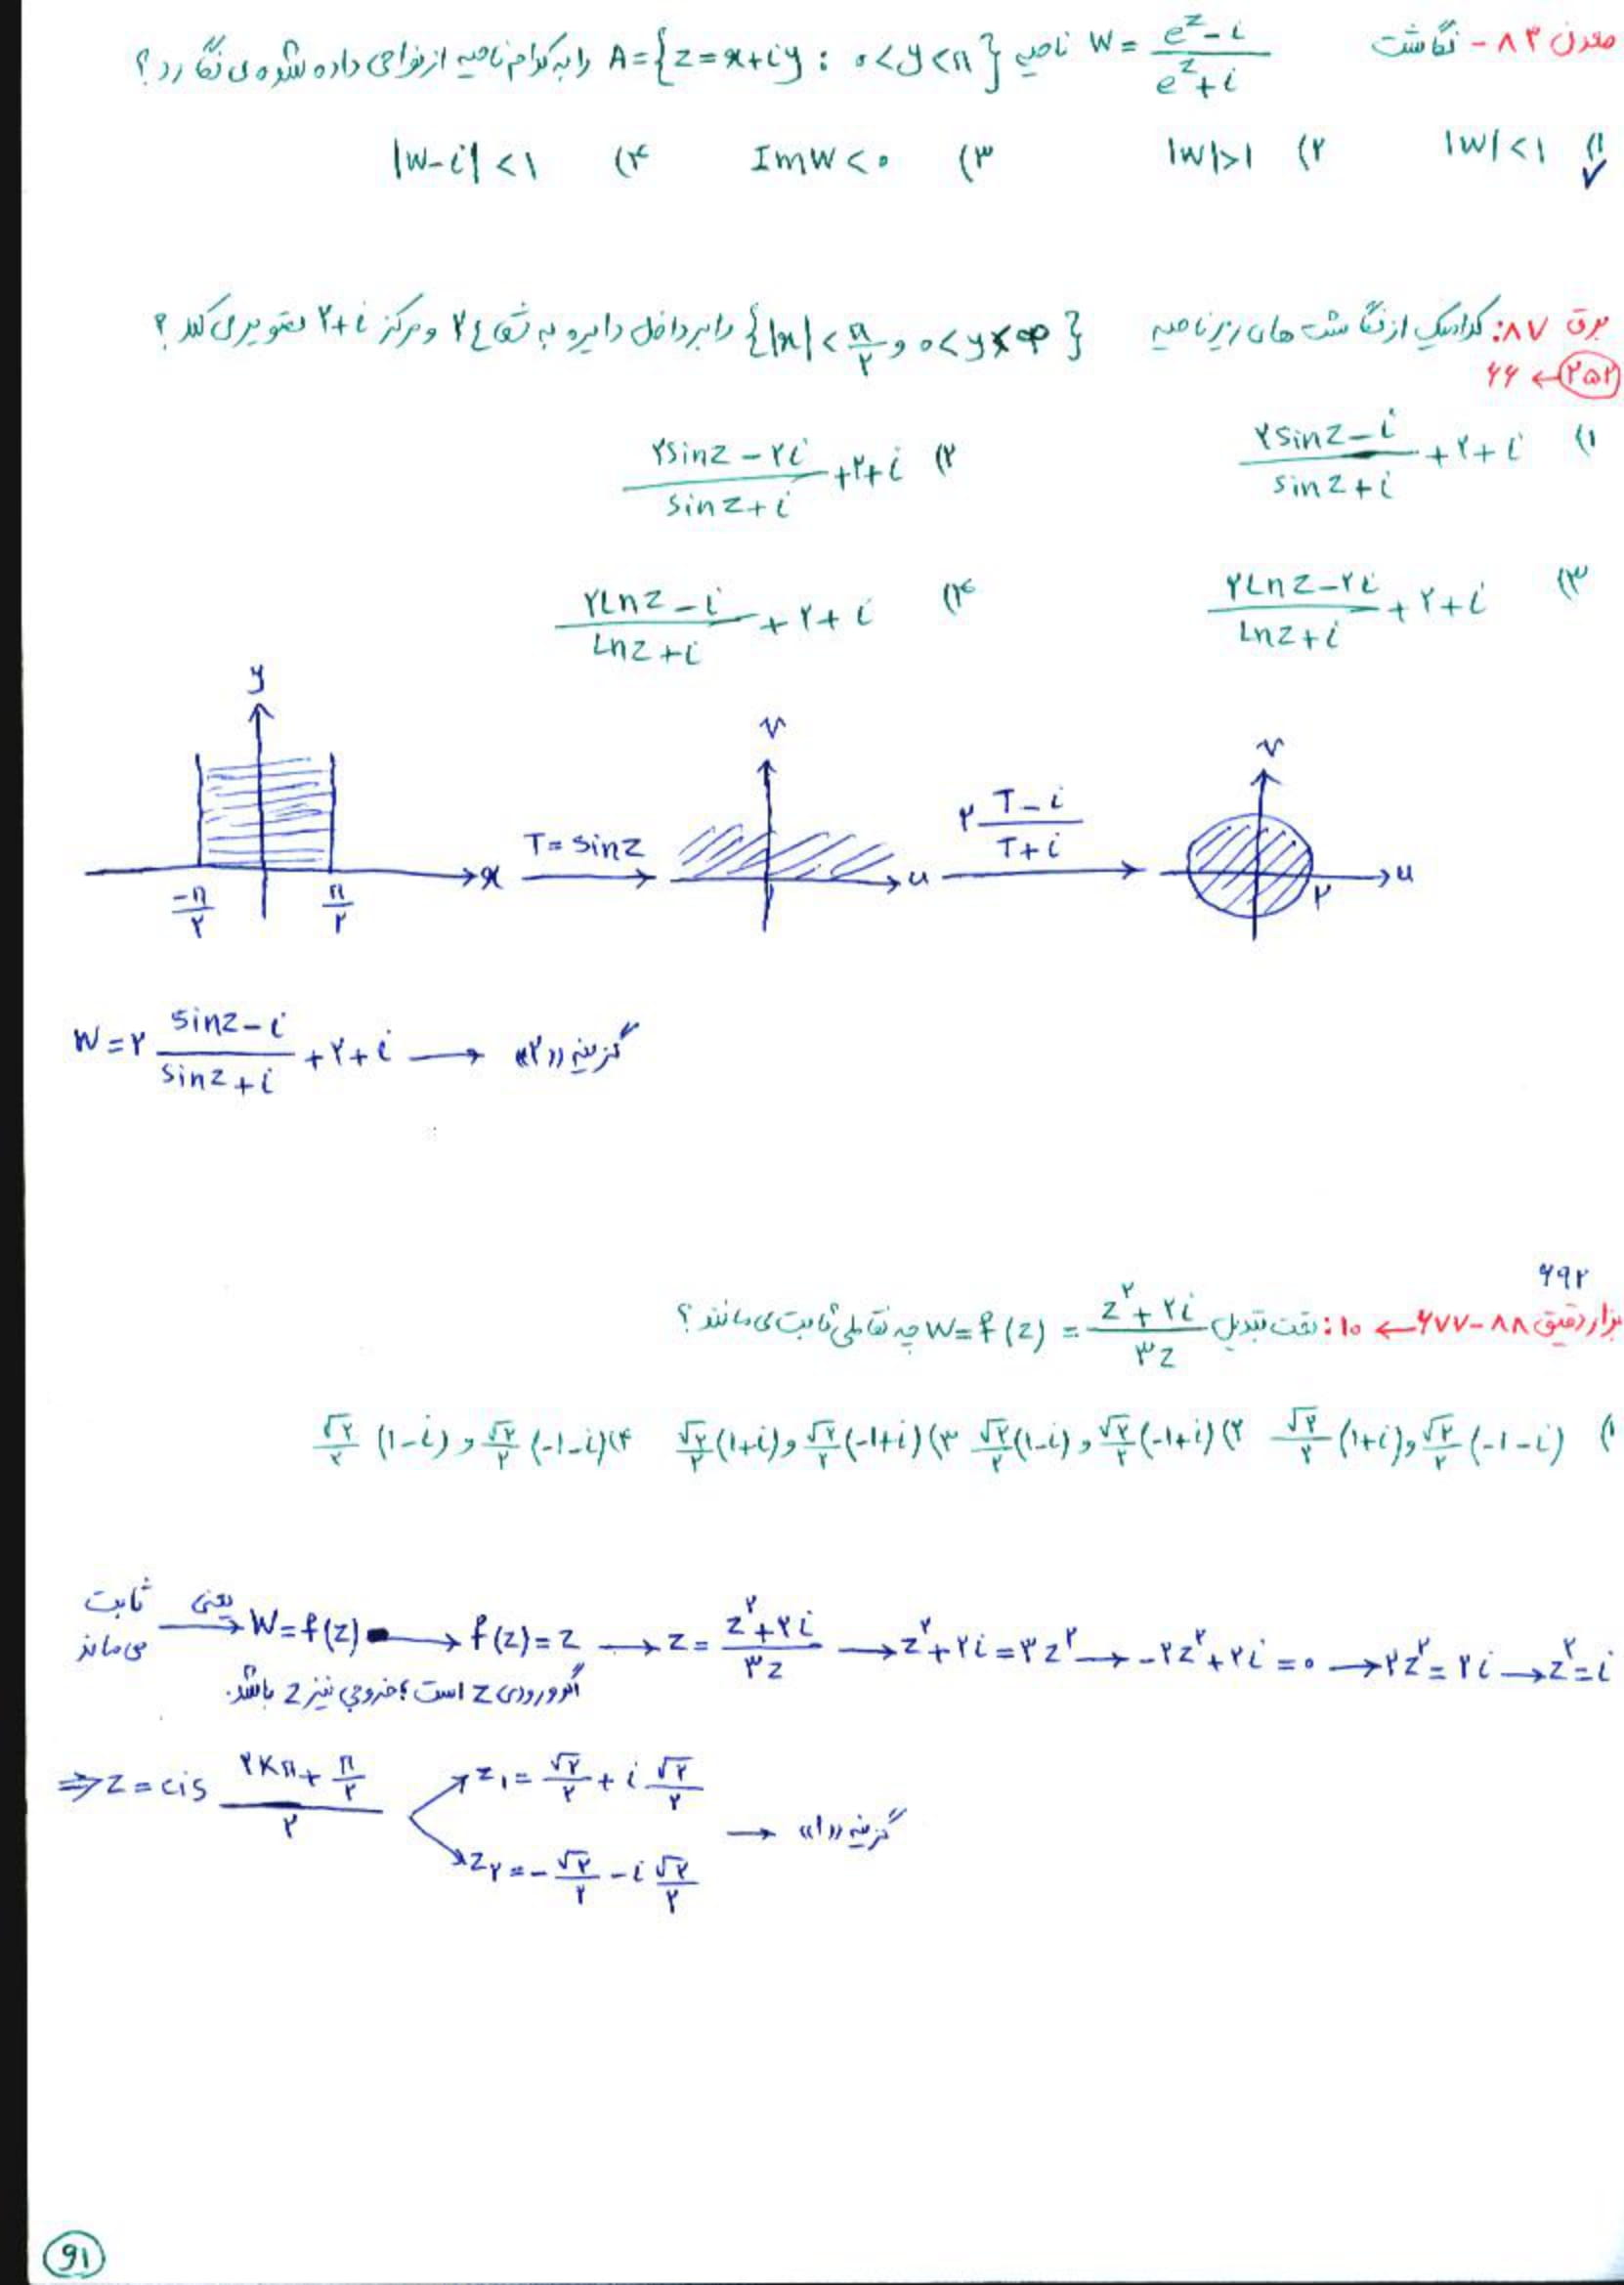 معدن ۸۳ - نگاشت W = (e^z - i)/(e^z + i) ناحیه A = {z = x+iy : 0<y<π} را به کدام ناحیه از نواحی داده شده می نگارد؟
۱) |W|<1 ✓ ۲) |W|>1 ۳) ImW<0 ۴) |W-i|<1
برق ۸۷: کدامیک از نگاشت های زیر ناحیه {|x|<π/۲ و 0<y<∞} را بر داخل دایره به شعاع ۲ و مرکز ۲+i تصویر می کند؟
۲۵۲ → ۶۶
۱) (۲sinz - i)/(sinz + i) + ۲ + i ۲) (۲sinz - ۲i)/(sinz + i) + ۲ + i
۳) (۲Lnz - ۲i)/(Lnz + i) + ۲ + i ۴) (۲Lnz - i)/(Lnz + i) + ۲ + i
y x -π/۲ π/۲ T = sinz v u ۲ (T-i)/(T+i) v u ۲
W = ۲ (sinz - i)/(sinz + i) + ۲ + i → گزینه «۲»
۶۹۲
ابزار دقیق ۸۸-۶۷۷ → ۱۰: تحت تبدیل W = f(z) = (z^۲ + ۲i)/(۳z) چه نقاطی ثابت می مانند؟
۱) √۲/۲ (1+i) و √۲/۲ (-1-i) ۲) √۲/۲ (1-i) و √۲/۲ (-1+i) ۳) √۲/۲ (1+i) و √۲/۲ (-1+i) ۴) √۲/۲ (1-i) و √۲/۲ (-1-i)
ثابت می ماند یعنی → W = f(z) → f(z) = z → z = (z^۲ + ۲i)/(۳z) → z^۲ + ۲i = ۳z^۲ → -۲z^۲ + ۲i = 0 → ۲z^۲ = ۲i → z^۲ = i
اگر ورودی z است، خروجی نیز z باشد.
⇒ z = cis (۲kπ + π/۲)/۲ z₁ = √۲/۲ + i √۲/۲
z₂ = -√۲/۲ - i √۲/۲ → گزینه «۱»
91